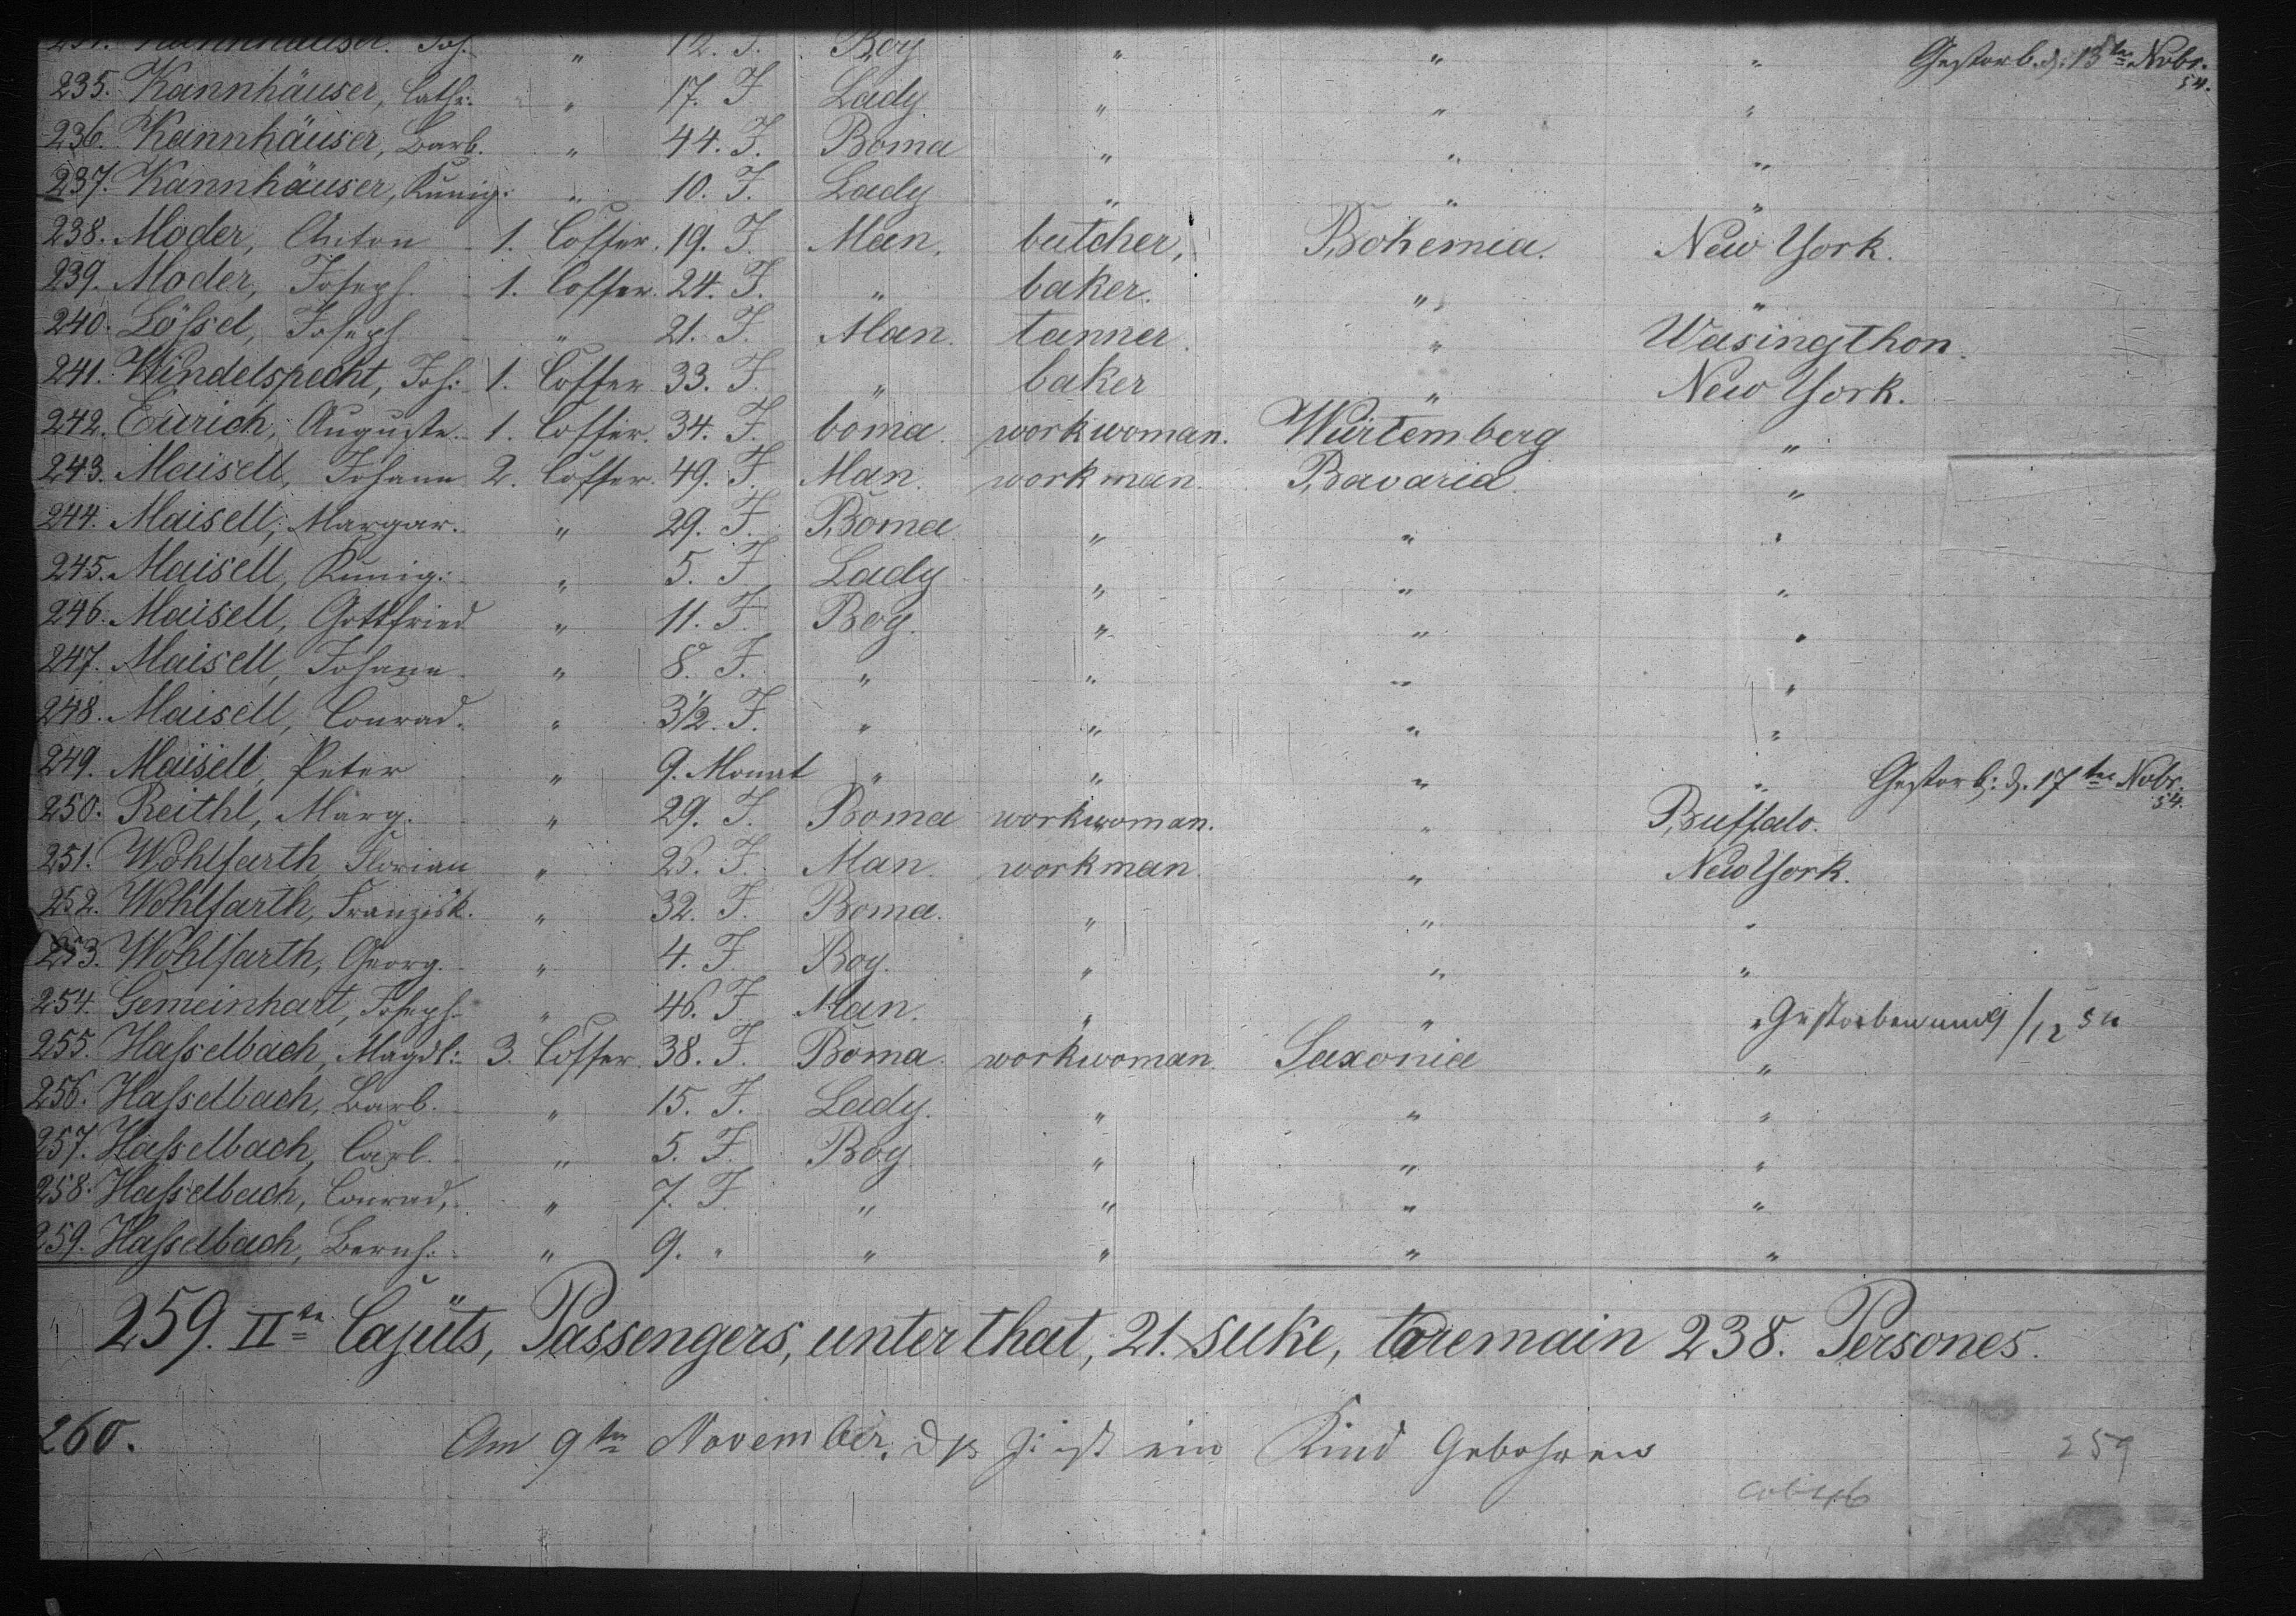 Kannhäuser. Joh. " 12. J. Boy " " " Gestorb. d. 13ten Nobr. 54.
235. Kannhäuser, Cathr. " 17. J. Lady " " "
236. Kannhäuser, Barb. " 44. J. Boma " " "
237. Kannhäuser, Kunig: " 10. J. Lady " " "
238. Moder, Anton 1. Coffer. 19. J. Man, butcher, Bohemia. New York.
239. Moder, Joseph. 1. Coffer. 24. J. " baker. " "
240. Lößel, Joseph " 21. J. Man. tanner. " Wasingthon.
241. Windelspecht, Joh: 1. Coffer 33. J. " baker " New York.
242. Eurich, Auguste. 1. Coffer. 34. J. boma. workwoman. Würtemberg "
243. Maisell, Johann 2. Coffer. 49. J. Man. workman. Bavaria. "
244. Maisell, Margar. " 29. J. Boma " " "
245. Maisell, Kunig: " 5. J. Lady " " "
246. Maisell, Gottfried " 11. J. Boy. " " "
247. Maisell, Johann " 8. J. " " " "
248. Maisell, Conrad. " 3 1/2. J. " " " "
249. Maisell, Peter " 9. Monat " " " " Gestorb: d. 17ten Nobr. 54.
250. Reithl, Marg. " 29. J. Boma workwoman. " Buffalo.
251. Wohlfarth, Florian " 26. J. Man. workman. " New York.
252. Wohlfarth, Franzisk. " 32. J. Boma. " " "
253. Wohlfarth, Georg. " 4. J. Boy. " " "
254. Gemeinhart, Joseph. " 46. J. Man. " " " Gestorben 9/12 54
255. Haßelbach, Magdl: 3. Coffer. 38. J. Boma. workwoman. Saxonia "
256. Haßelbach, Barb. " 15. J. Lady. " " "
257. Haßelbach, Carl. " 5. J. Boy " " "
258. Haßelbach, Conrad, " 7. J. " " " "
259. Haßelbach, Bernh: " 9. " " " " "
259. IIte Cajüts, Passengers, unter that, 21. suke, to remain 238. Persones.
260. Am 9ten November, ds J: ist ein Kind Gebohren
259